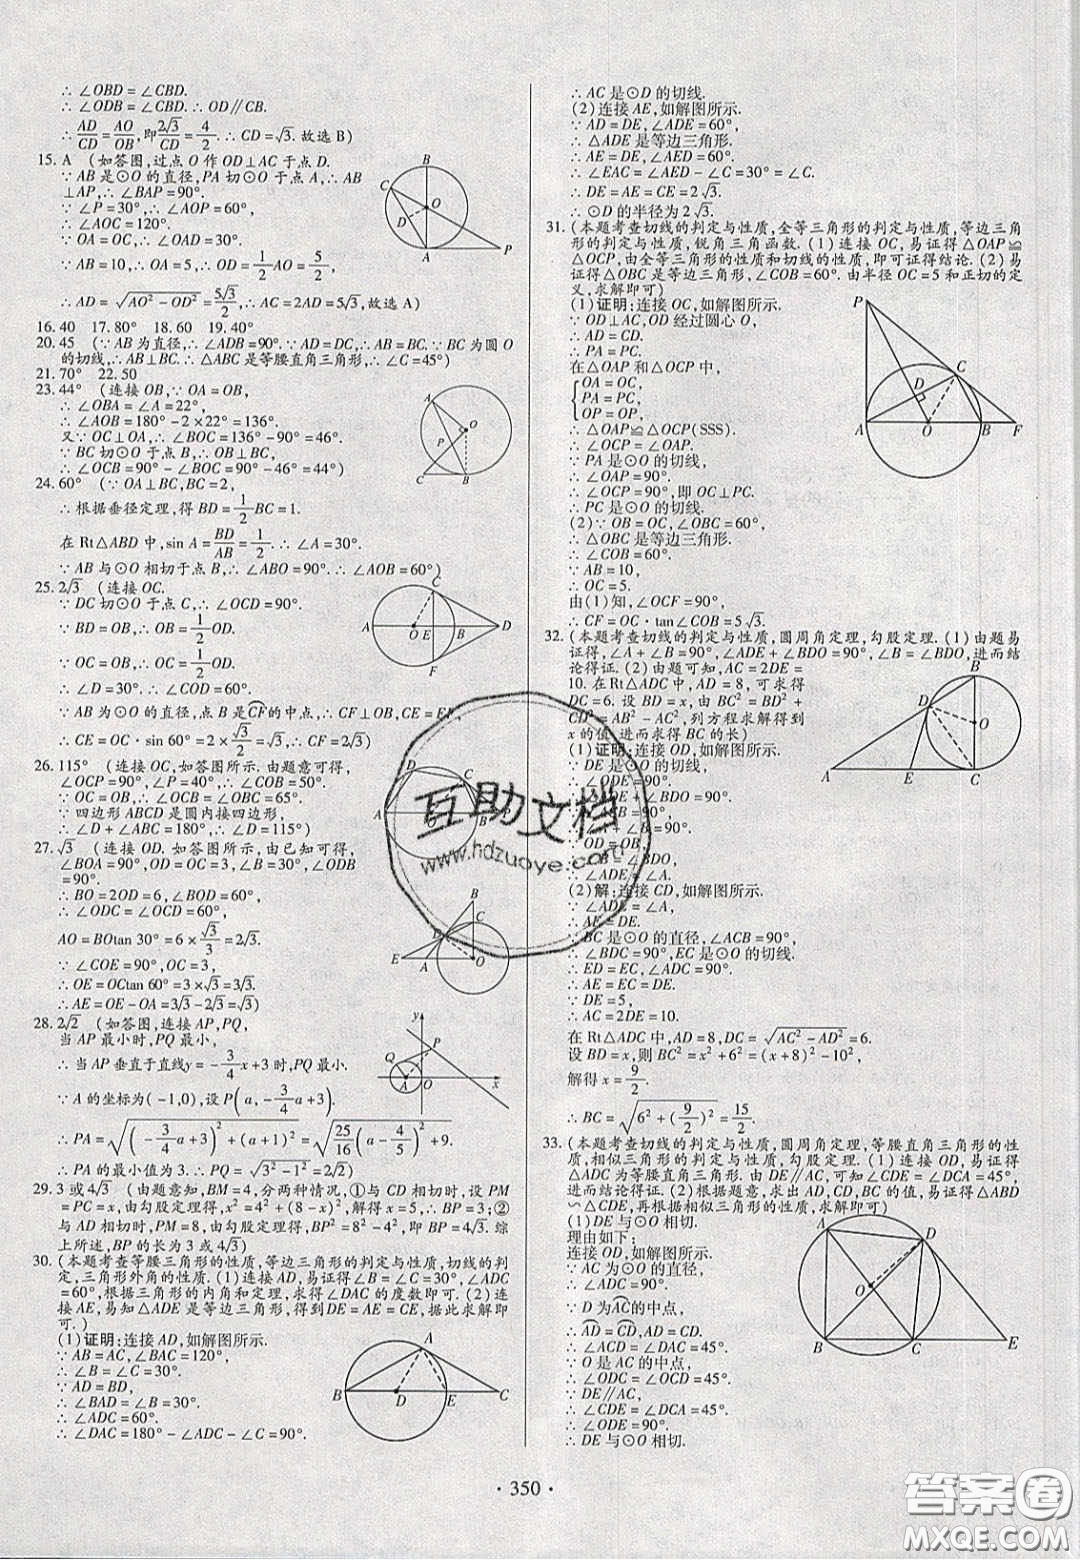 ∴ ∠OBD = ∠CBD.
∴ ∠ODB = ∠CBD. ∴ OD∥CB.
∴ AD/CD = AO/OB, 即 2√3/CD = 4/2. ∴ CD = √3. 故选 B)
15. A (如答图, 过点 O 作 OD⊥AC 于点 D.
∵ AB 是⊙O 的直径, PA 切⊙O 于点 A, ∴ AB
⊥AP, ∴ ∠BAP = 90°.
∵ ∠P = 30°, ∴ ∠AOP = 60°,
∴ ∠AOC = 120°.
∵ OA = OC, ∴ ∠OAD = 30°.
∵ AB = 10, ∴ OA = 5, ∴ OD = 1/2 AO = 5/2,
∴ AD = √(AO² − OD²) = 5√3/2, ∴ AC = 2AD = 5√3, 故选 A)
16. 40 17. 80° 18. 60 19. 40°
20. 45 (∵ AB 为直径, ∴ ∠ADB = 90°. ∵ BD = DC, ∴ AB = AC. ∵ BC 为圆 O
的切线, ∴ AB⊥BC. ∴ △ABC 是等腰直角三角形, ∴ ∠C = 45°)
21. 70° 22. 50
23. 44° (连接 OB, ∵ OA = OB,
∴ ∠OBA = ∠A = 22°,
∴ ∠AOB = 180° − 2×22° = 136°.
又∵ OC⊥OA, ∴ ∠BOC = 136° − 90° = 46°.
∵ BC 切⊙O 于点 B, ∴ OB⊥BC,
∴ ∠OCB = 90° − ∠BOC = 90° − 46° = 44°)
24. 60° (∵ OA⊥BC, BC = 2,
∴ 根据垂径定理, 得 BD = 1/2 BC = 1.
在 Rt△ABD 中, sin A = BD/AB = 1/2. ∴ ∠A = 30°.
∵ AB 与⊙O 相切于点 B, ∴ ∠ABO = 90°. ∴ ∠AOB = 60°)
25. 2√3 (连接 OC.
∵ DC 切⊙O 于点 C, ∴ ∠OCD = 90°.
∵ BD = OB, ∴ OB = 1/2 OD.
∵ OC = OB, ∴ OC = 1/2 OD.
∴ ∠D = 30°, ∴ ∠COD = 60°.
∵ AB 为⊙O 的直径, 点 B 是CF的中点, ∴ CF⊥OB, CE = EF,
∴ CE = OC·sin 60° = 2×√3/2 = √3, ∴ CF = 2√3)
26. 115° (连接 OC, 如答图所示. 由题意可得,
∠OCP = 90°, ∠P = 40°, ∴ ∠COB = 50°.
∵ OC = OB, ∴ ∠OCB = ∠OBC = 65°.
∵ 四边形 ABCD 是圆内接四边形,
∴ ∠D + ∠ABC = 180°, ∴ ∠D = 115°)
27. √3 (连接 OD. 如答图所示, 由已知可得,
∠BOA = 90°, OD = OC = 3, ∠B = 30°, ∠ODB
= 90°.
∴ BO = 2OD = 6, ∠BOD = 60°.
∴ ∠ODC = ∠OCD = 60°,
AO = BOtan 30° = 6×√3/3 = 2√3.
∵ ∠COE = 90°, OC = 3,
∴ OE = OCtan 60° = 3×√3 = 3√3.
∴ AE = OE − OA = 3√3 − 2√3 = √3)
28. 2√2 (如答图, 连接 AP, PQ,
当 AP 最小时, PQ 最小,
∴ 当 AP 垂直于直线y = −3/4 x + 3 时, PQ 最小.
∵ A 的坐标为(−1,0), 设 P(a, −3/4 a + 3).
∴ PA = √((−3/4 a + 3)² + (a+1)²) = √(25/16 (a − 4/5)² + 9.
∴ PA 的最小值为 3. ∴ PQ = √(3² − 1²) = 2√2)
29. 3 或 4√3 (由题意知, BM = 4, 分两种情况, ①与 CD 相切时, 设 PM
= PC = x, 由勾股定理得, x² = 4² + (8 − x)², 解得 x = 5, ∴ BP = 3; ②
与 AD 相切时, PM = 8, 由勾股定理得, BP² = 8² − 4², 即 BP = 4√3. 综
上所述, BP 的长为 3 或 4√3)
30. (本题考查等腰三角形的性质, 等边三角形的判定与性质, 切线的判
定, 三角形外角的性质. (1)连接 AD, 易证得∠B = ∠C = 30°, ∠ADC
= 60°, 根据三角形的内角和定理, 求得∠DAC 的度数即可. (2)连
接 AE, 易知△ADE 是等边三角形, 得到 DE = AE = CE, 据此求解即
可. )
(1)证明: 连接 AD, 如解图所示.
∵ AB = AC, ∠BAC = 120°,
∴ ∠B = ∠C = 30°.
∵ AD = BD,
∴ ∠BAD = ∠B = 30°,
∴ ∠ADC = 60°.
∴ ∠DAC = 180° − ∠ADC − ∠C = 90°.
∴ AC 是⊙D 的切线.
(2)连接 AE, 如解图所示.
∵ AD = DE, ∠ADE = 60°,
∴ △ADE 是等边三角形.
∴ AE = DE, ∠AED = 60°.
∴ ∠EAC = ∠AED − ∠C = 30° = ∠C.
∴ DE = AE = CE = 2√3.
∴ ⊙D 的半径为 2√3.
31. (本题考查切线的判定与性质, 全等三角形的判定与性质, 等边三角
形的判定与性质, 锐角三角函数. (1)连接 OC, 易证得△OAP≌
△OCP, 由全等三角形的性质和切线的性质, 即可证得结论. (2)易
证得△OBC 是等边三角形, ∠COB = 60°. 由半径 OC = 5 和正切的定
义, 求解即可)
(1)证明: 连接 OC, 如解图所示.
∵ OD⊥AC, OD 经过圆心 O,
∴ AD = CD.
∴ PA = PC.
在△OAP 和△OCP 中,
OA = OC,
PA = PC,
OP = OP,
∴ △OAP≌△OCP(SSS).
∴ ∠OCP = ∠OAP.
∵ PA 是⊙O 的切线,
∴ ∠OAP = 90°.
∴ ∠OCP = 90°, 即 OC⊥PC.
∴ PC 是⊙O 的切线.
(2)∵ OB = OC, ∠OBC = 60°,
∴ △OBC 是等边三角形.
∴ ∠COB = 60°.
∵ AB = 10,
∴ OC = 5.
由(1)知, ∠OCF = 90°,
∴ CF = OC·tan∠COB = 5√3.
32. (本题考查切线的判定与性质, 圆周角定理, 勾股定理. (1)由题易
证得, ∠A + ∠B = 90°, ∠ADE + ∠BDO = 90°, ∠B = ∠BDO, 进而结
论得证. (2)由题可知, AC = 2DE =
10. 在 Rt△ADC 中, AD = 8, 可求得
DC = 6. 设 BD = x, 由 BC² = BD² +
CD² = AB² − AC², 列方程求解得到
x 的值, 进而求得 BC 的长)
(1)证明: 连接 OD, 如解图所示.
∵ DE 是⊙O 的切线,
∴ ∠ODE = 90°.
∴ ∠ADE + ∠BDO = 90°.
∵ ∠ACB = 90°,
∴ ∠A + ∠B = 90°.
∵ OD = OB,
∴ ∠B = ∠BDO,
∴ ∠ADE = ∠A.
(2)解: 连接 CD, 如解图所示.
∵ ∠ADE = ∠A,
∴ AE = DE.
∵ BC 是⊙O 的直径, ∠ACB = 90°,
∴ ∠BDC = 90°, EC 是⊙O 的切线.
∴ ED = EC, ∠ADC = 90°.
∴ AE = EC = DE.
∵ DE = 5,
∴ AC = 2DE = 10.
在 Rt△ADC 中, AD = 8, DC = √(AC² − AD²) = 6.
设 BD = x, 则 BC² = x² + 6² = (x + 8)² − 10²,
解得 x = 9/2.
∴ BC = √(6² + (9/2)²) = 15/2.
33. (本题考查切线的判定与性质, 圆周角定理, 等腰直角三角形的性
质, 相似三角形的判定与性质, 勾股定理. (1)连接 OD, 易证得
△ADC 为等腰直角三角形. 由 DE∥AC, 可得∠CDE = ∠DCA = 45°,
进而结论得证. (2)根据题意, 求出 AD, CD, BC 的值, 易证得△ABD
∽△CDE, 再根据相似三角形的性质, 求解即可)
(1)DE 与⊙O 相切.
理由如下:
连接 OD, 如解图所示.
∵ AC 为⊙O 的直径,
∴ ∠ADC = 90°.
∵ D 为AC的中点,
∴ AD = CD, AD = CD.
∴ ∠ACD = ∠DAC = 45°.
∵ O 是 AC 的中点,
∴ ∠ODC = ∠OCD = 45°.
∵ DE∥AC,
∴ ∠CDE = ∠DCA = 45°.
∴ ∠ODE = 90°.
∴ DE 与⊙O 相切.
· 350 ·
互助文档
www.hdzuoye.com
答案圈
MXQE.COM